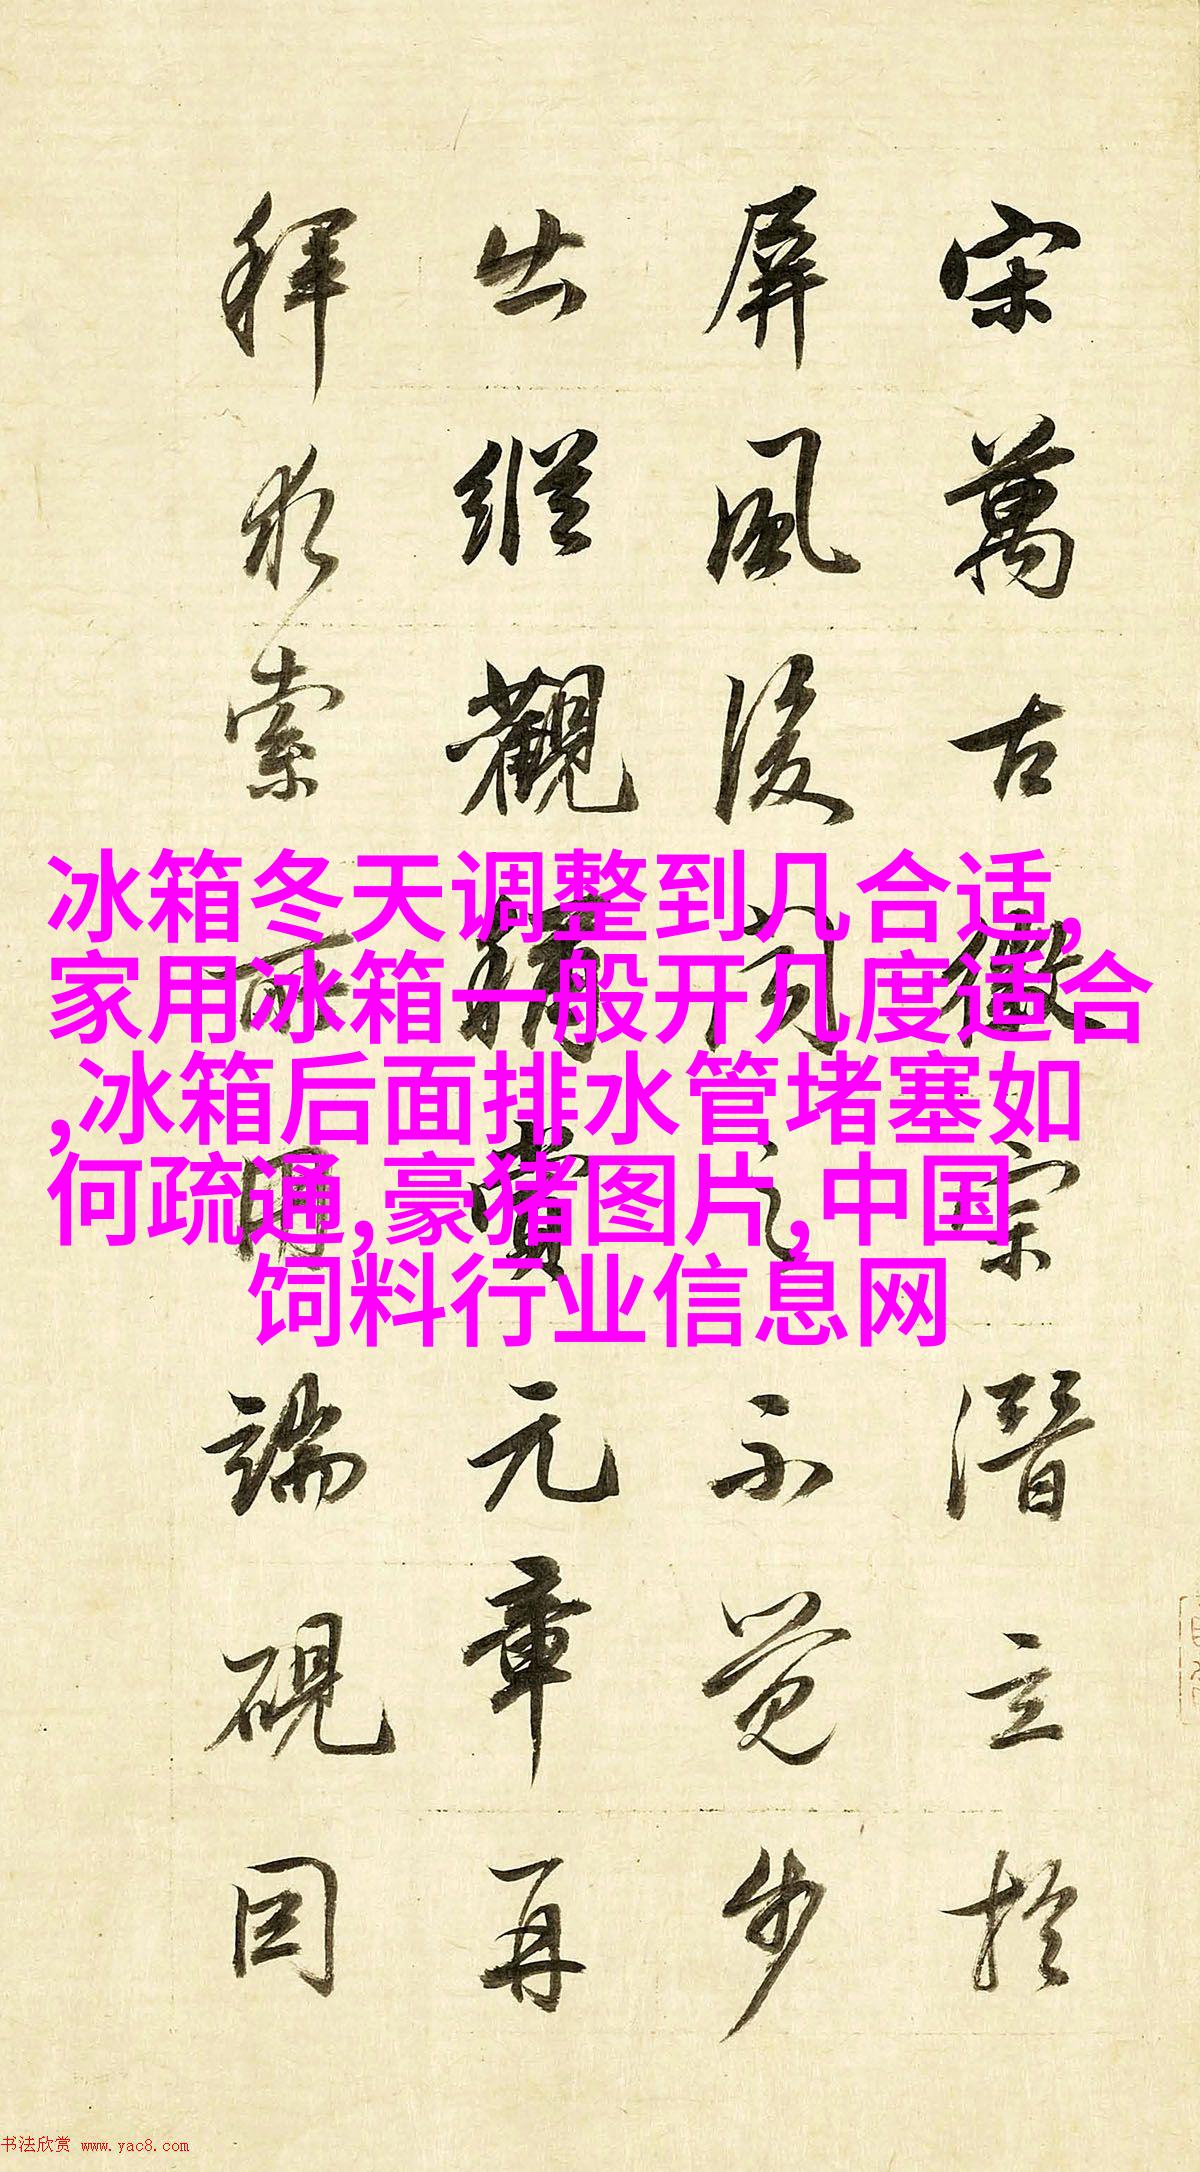 宋萬古徽宗潛立於
屏風後聞之不覺步
出縱觀稱賞元章再
拜求索所用端硯因
冰箱冬天调整到几合适,
家用冰箱一般开几度适合
,冰箱后面排水管堵塞如
何疏通,豪猪图片,中国
饲料行业信息网
书法欣赏 www.yac8.com